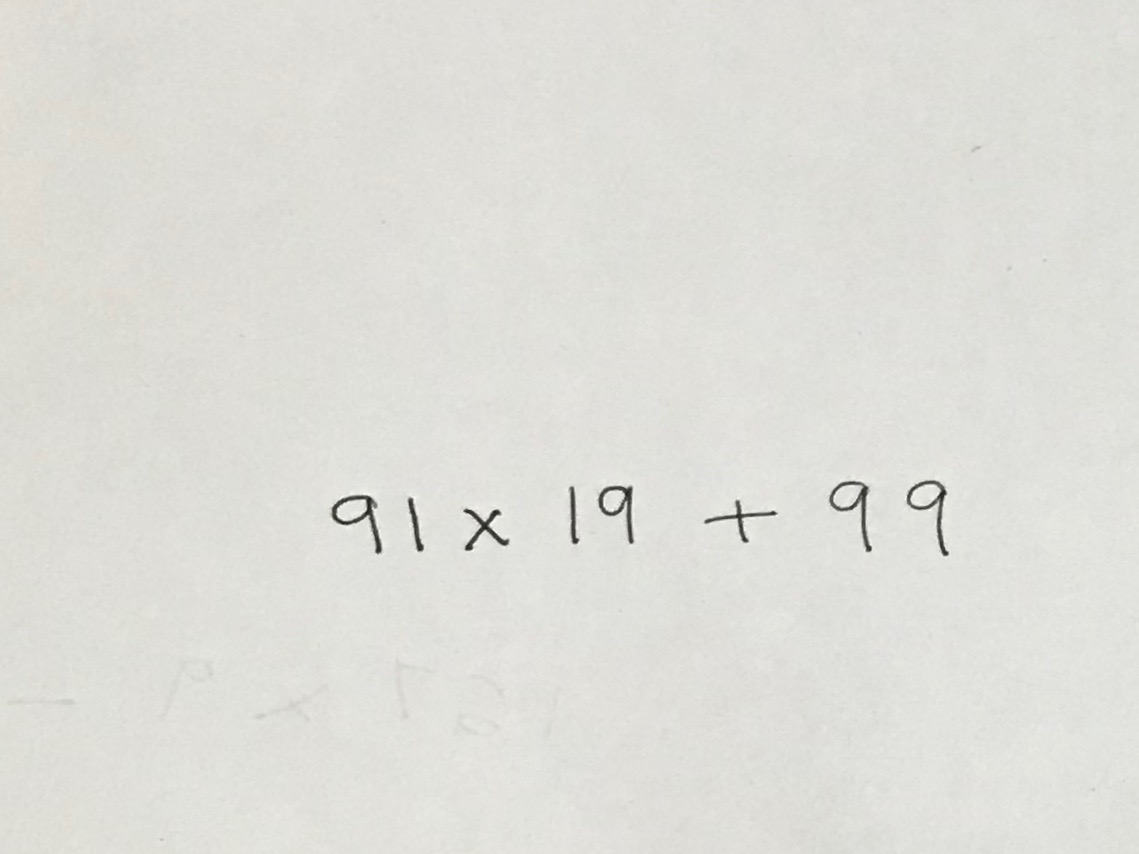 91 x 19 + 99